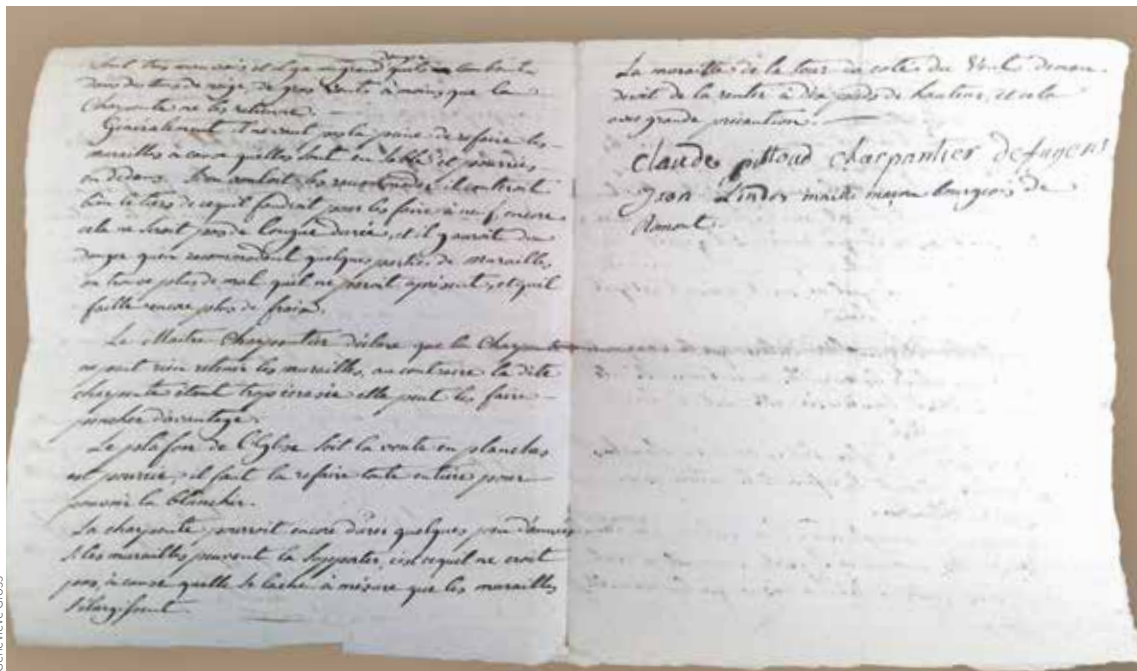 sont très mauvais et il y a un grand danger quils ne tombent
dans des tems de neige, de gros vents à moins que la
Charpente ne les retienne.
Généralement il ne vaut pas la peine de refaire les
murailles à cause quelles sont en sable et pourries
en dedans. Si on vouloit les raccomoder il couteroit
bien le tiers de ce quil faudroit pour les faire à neuf, encore
cela ne seroit pas de longue durée, et il y auroit du
danger quen raccomodant quelques parties de murailles
on trouve plus de mal quil ne paroit apresent, et quil
faille encore plus de fraix.
Le Maitre Charpentier déclare que la Charpente
ne peut rien retenir les murailles, au contraire la dite
charpente étant trop écrasée elle peut les faire
pancher davantage.
Le plafon de l'Eglise soit la voute en planches
est pourrie, il faut la refaire toute entière pour
pouvoir la blanchir.
La charpente pourroit encore durer quelques peu d'années
si les murailles peuvent la supporter, c'est ce quil ne croit
pas, à cause quelle se lache à mésure que les murailles
s'élargissent
La muraille de la tour du coté du Vent deman
deroit de la rentrer à dix pieds de hauteur, et cela
avec grande précaution.
Claude pittoud charpantier
Jean maitre maçon bourgeois de
Romont.
Geneviève Gross